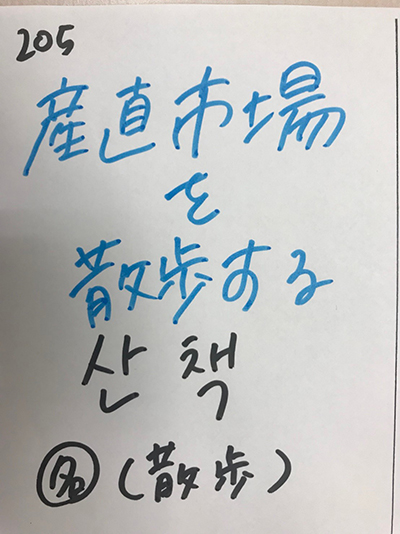 205
産直市場
を
散歩する
산책
㊔(散歩)